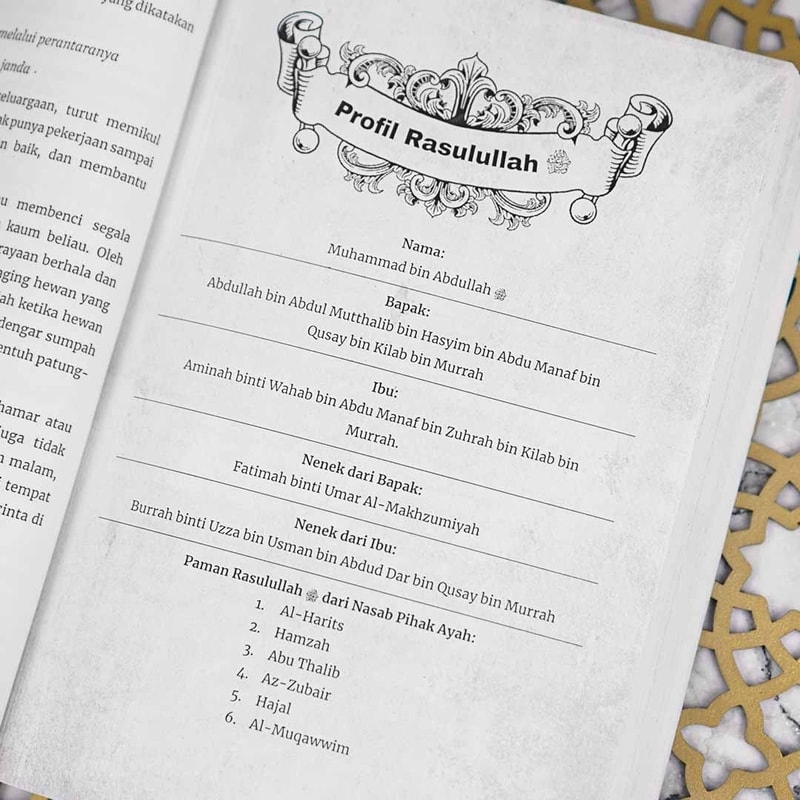 yang dikatakan
melalui perantaranya
janda .
keluargaan, turut memikul
punya pekerjaan sampai
n baik, dan membantu
u membenci segala
kaum beliau. Oleh
rayaan berhala dan
ging hewan yang
ah ketika hewan
dengar sumpah
entuh patung-
hamar atau
juga tidak
malam,
tempat
cinta di
Profil Rasulullah ﷺ
Nama:
Muhammad bin Abdullah ﷺ
Bapak:
Abdullah bin Abdul Mutthalib bin Hasyim bin Abdu Manaf bin
Qusay bin Kilab bin Murrah
Ibu:
Aminah binti Wahab bin Abdu Manaf bin Zuhrah bin Kilab bin
Murrah.
Nenek dari Bapak:
Fatimah binti Umar Al-Makhzumiyah
Nenek dari Ibu:
Burrah binti Uzza bin Usman bin Abdud Dar bin Qusay bin Murrah
Paman Rasulullah ﷺ dari Nasab Pihak Ayah:
1. Al-Harits
2. Hamzah
3. Abu Thalib
4. Az-Zubair
5. Hajal
6. Al-Muqawwim